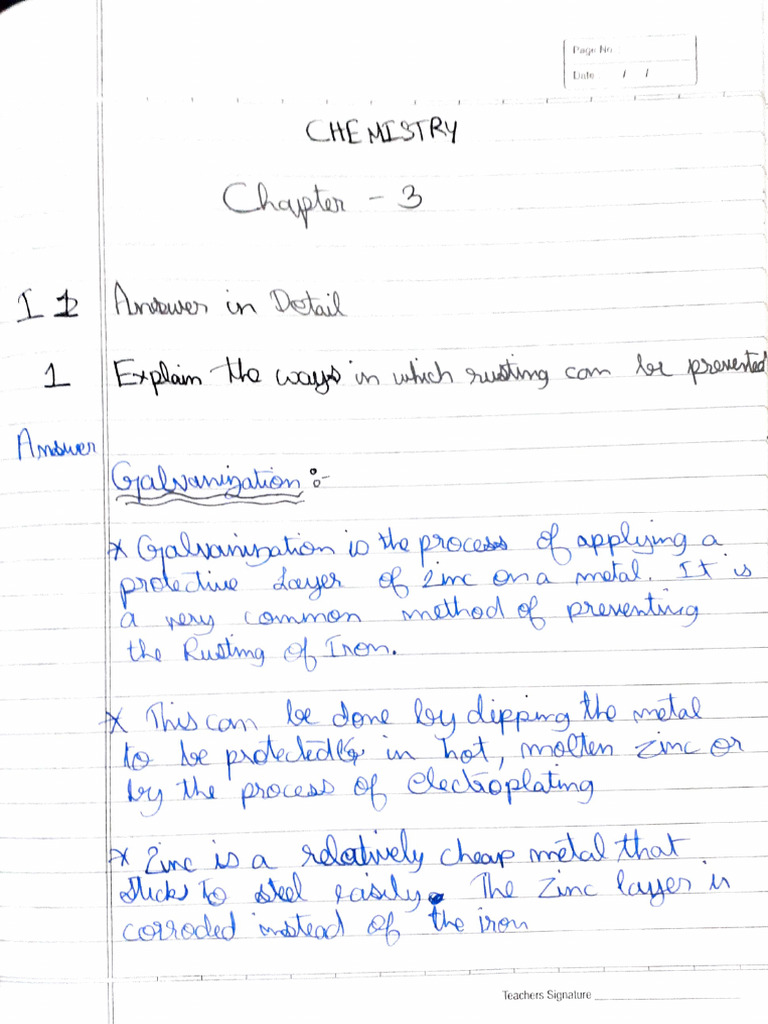 Page No
Date / /
CHEMISTRY
Chapter - 3
I 1 Answer in Detail
1 Explain the ways in which rusting can be prevented
Answer
Galvanization :-
* Galvanization is the process of applying a
protective Layer of zinc on a metal. It is
a very common method of preventing
the Rusting of Iron.
* This can be done by dipping the metal
to be protected in hot, molten zinc or
by the process of electroplating
* Zinc is a relatively cheap metal that
sticks to steel easily. The Zinc layer is
corroded instead of the iron
Teachers Signature